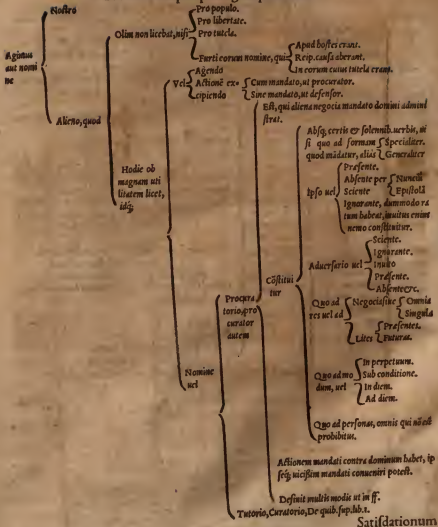 Agimus aut nomi
ne
Nostro
Alieno, quod
Olim non licebat, nisi
Pro populo.
Pro libertate.
Pro tutela.
Furti eorum nomine, qui
Apud hostes erant.
Reip. causa aberant.
In eorum cuius tutela erant.
Hodie ob
magnam uti
litatem licet,
idq;
Vel
Agendo
Actionē ex-
cipiendo
Cum mandato, ut procurator.
Sine mandato, ut defensor.
Nomine
uel
Procura
torio, pro
curator
autem
Est, qui aliena negocia mandato domini admini
strat.
Cōstitui
tur
Absq; certis & solennib. uerbis, ni
si quo ad formam
quod mādatur, aliàs
Specialiter.
Generaliter
Ipso uel
Præsente.
Absente per
Nunciū
Epistolā
Sciente
Ignorante, dummodo ra
tum habeat, inuitus enim
nemo constituitur.
Aduersario uel
Sciente.
Ignorante.
Inuito
Præsente.
Absente &c.
Quo ad
res uel ad
Negocia siue
Omnia
Singula
Lites
Præsentes.
Futuras.
Quo ad mo
dum, uel
In perpetuum.
Sub conditione.
In diem.
Ad diem.
Quo ad personas, omnis qui nō est
prohibitus.
Actionem mandati contra dominum habet, ip
seq; uicissim mandati conueniri potest.
Definit multis modis ut in ff.
Tutorio, Curatorio, De quib. sup. lib. 1.
Satisdationum